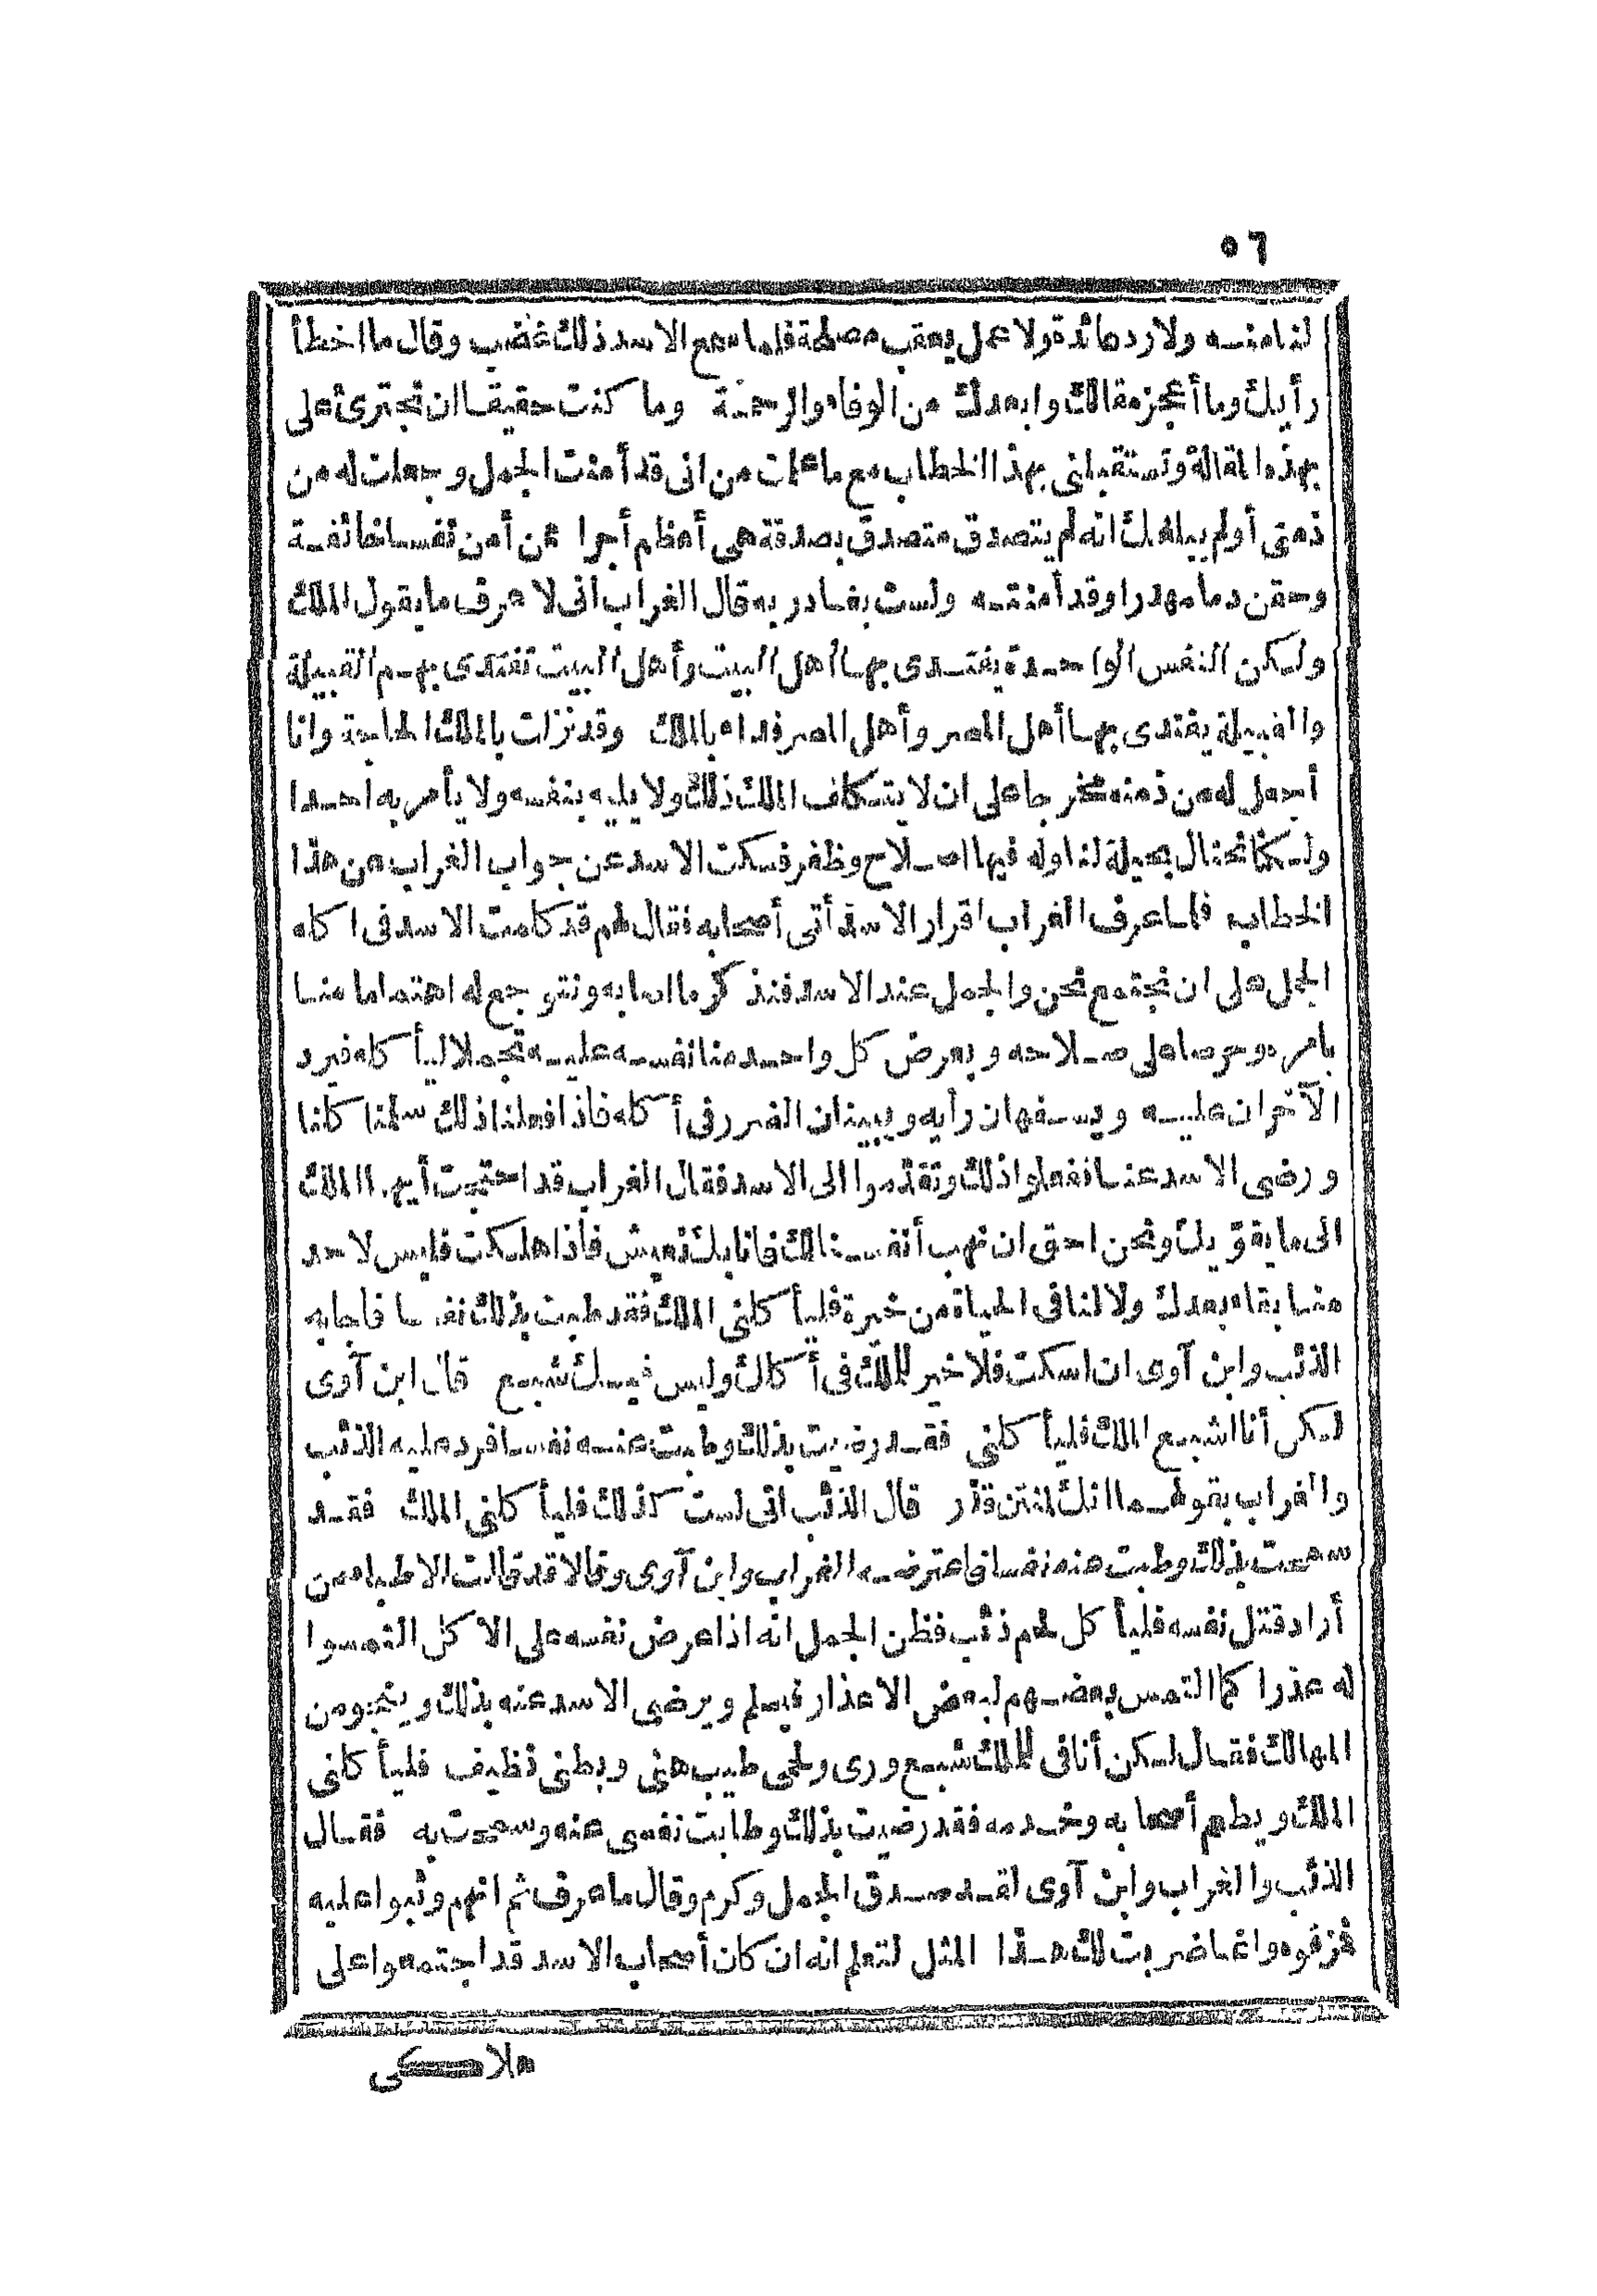 ٥٦
لنا منه ولا رد عائدة ولا عمل يعقب مصلحة فلما سمع الاسد ذلك غضب وقال ما اخطأ
رأيك وما أعجز مقالك وابعدك من الوفاء والرحمة وما كنت حقيقا ان تجترئ على
بهذه المقالة وتستقبلنى بهذا الخطاب مع ما علمت من انى قد أمنت الجمل وجعلت له من
ذمتى أولم يبلغك انه لم يتصدق متصدق بصدقة هى أعظم أجرا ممن أمن نفسا خائفة
وحقن دما مهدرا وقد أمنته ولست بغادر به قال الغراب انى لاعرف ما يقول الملك
ولكن النفس الواحدة يفتدى بها أهل البيت وأهل البيت تفتدى بهم القبيلة
والقبيلة يفتدى بها أهل المصر وأهل المصر فداء بالملك وقد نزلت بالملك الحاجة وانا
أجعل له من ذمته مخرجا على ان لا يتكلف الملك ذلك ولا يليه بنفسه ولا يأمر به احدا
ولكنا نحتال بحيلة لنا وله فيها اصلاح وظفر فسكت الاسد عن جواب الغراب من هذا
الخطاب فلما عرف الغراب اقرار الاسد أتى أصحابه فقال لهم قد كلمت الاسد فى اكله
الجمل على ان نجتمع نحن والجمل عند الاسد فنذكر ما اصابه ونتوجع له اهتماما منا
بامره وحرصا على صلاحه ويعرض كل واحد منا نفسه عليه تجملا ليأكله فيرد
الآخران عليه ويسفهان رأيه ويبينان الضرر فى أكله فاذا فعلنا ذلك سلمنا كلنا
ورضى الاسد عنا ففعلوا ذلك وتقدموا الى الاسد فقال الغراب قد احتجت أيها الملك
الى ما يقويك ونحن احق ان نهب أنفسنا لك فانا بك نعيش فاذا هلكت فليس لاحد
منا بقاء بعدك ولا لنا فى الحياة من خيرة فليأكلنى الملك فقد طبت بذلك نفسا فاجابه
الذئب وابن آوى ان اسكت فلا خير للملك فى أكلك وليس فيك شبع قال ابن آوى
لكن أنا اشبع الملك فليأكلنى فقد رضيت بذلك وطبت عنه نفسا فرد عليه الذئب
والغراب بقولهما انك لمنتن قذر قال الذئب انى لست كذلك فليأكلنى الملك فقد
سمحت بذلك وطبت عنه نفسا فاعترضه الغراب وابن آوى وقالا قد قالت الاطباء من
أراد قتل نفسه فليأكل لحم ذئب فظن الجمل انه اذا عرض نفسه على الاكل التمسوا
له عذرا كما التمس بعضهم لبعض الاعذار فيسلم ويرضى الاسد عنه بذلك وينجو من
المهالك فقال لكن أنا فى للملك شبع ورى ولحمى طيب هنى وبطنى نظيف فليأكلنى
الملك ويطعم أصحابه وخدمه فقد رضيت بذلك وطابت نفسى عنه وسمحت به فقال
الذئب والغراب وابن آوى لقد صدق الجمل وكرم وقال ما عرف ثم انهم وثبوا عليه
فمزقوه وانما ضربت لك هذا المثل لتعلم انه ان كان أصحاب الاسد قد اجتمعوا على
هلاكى